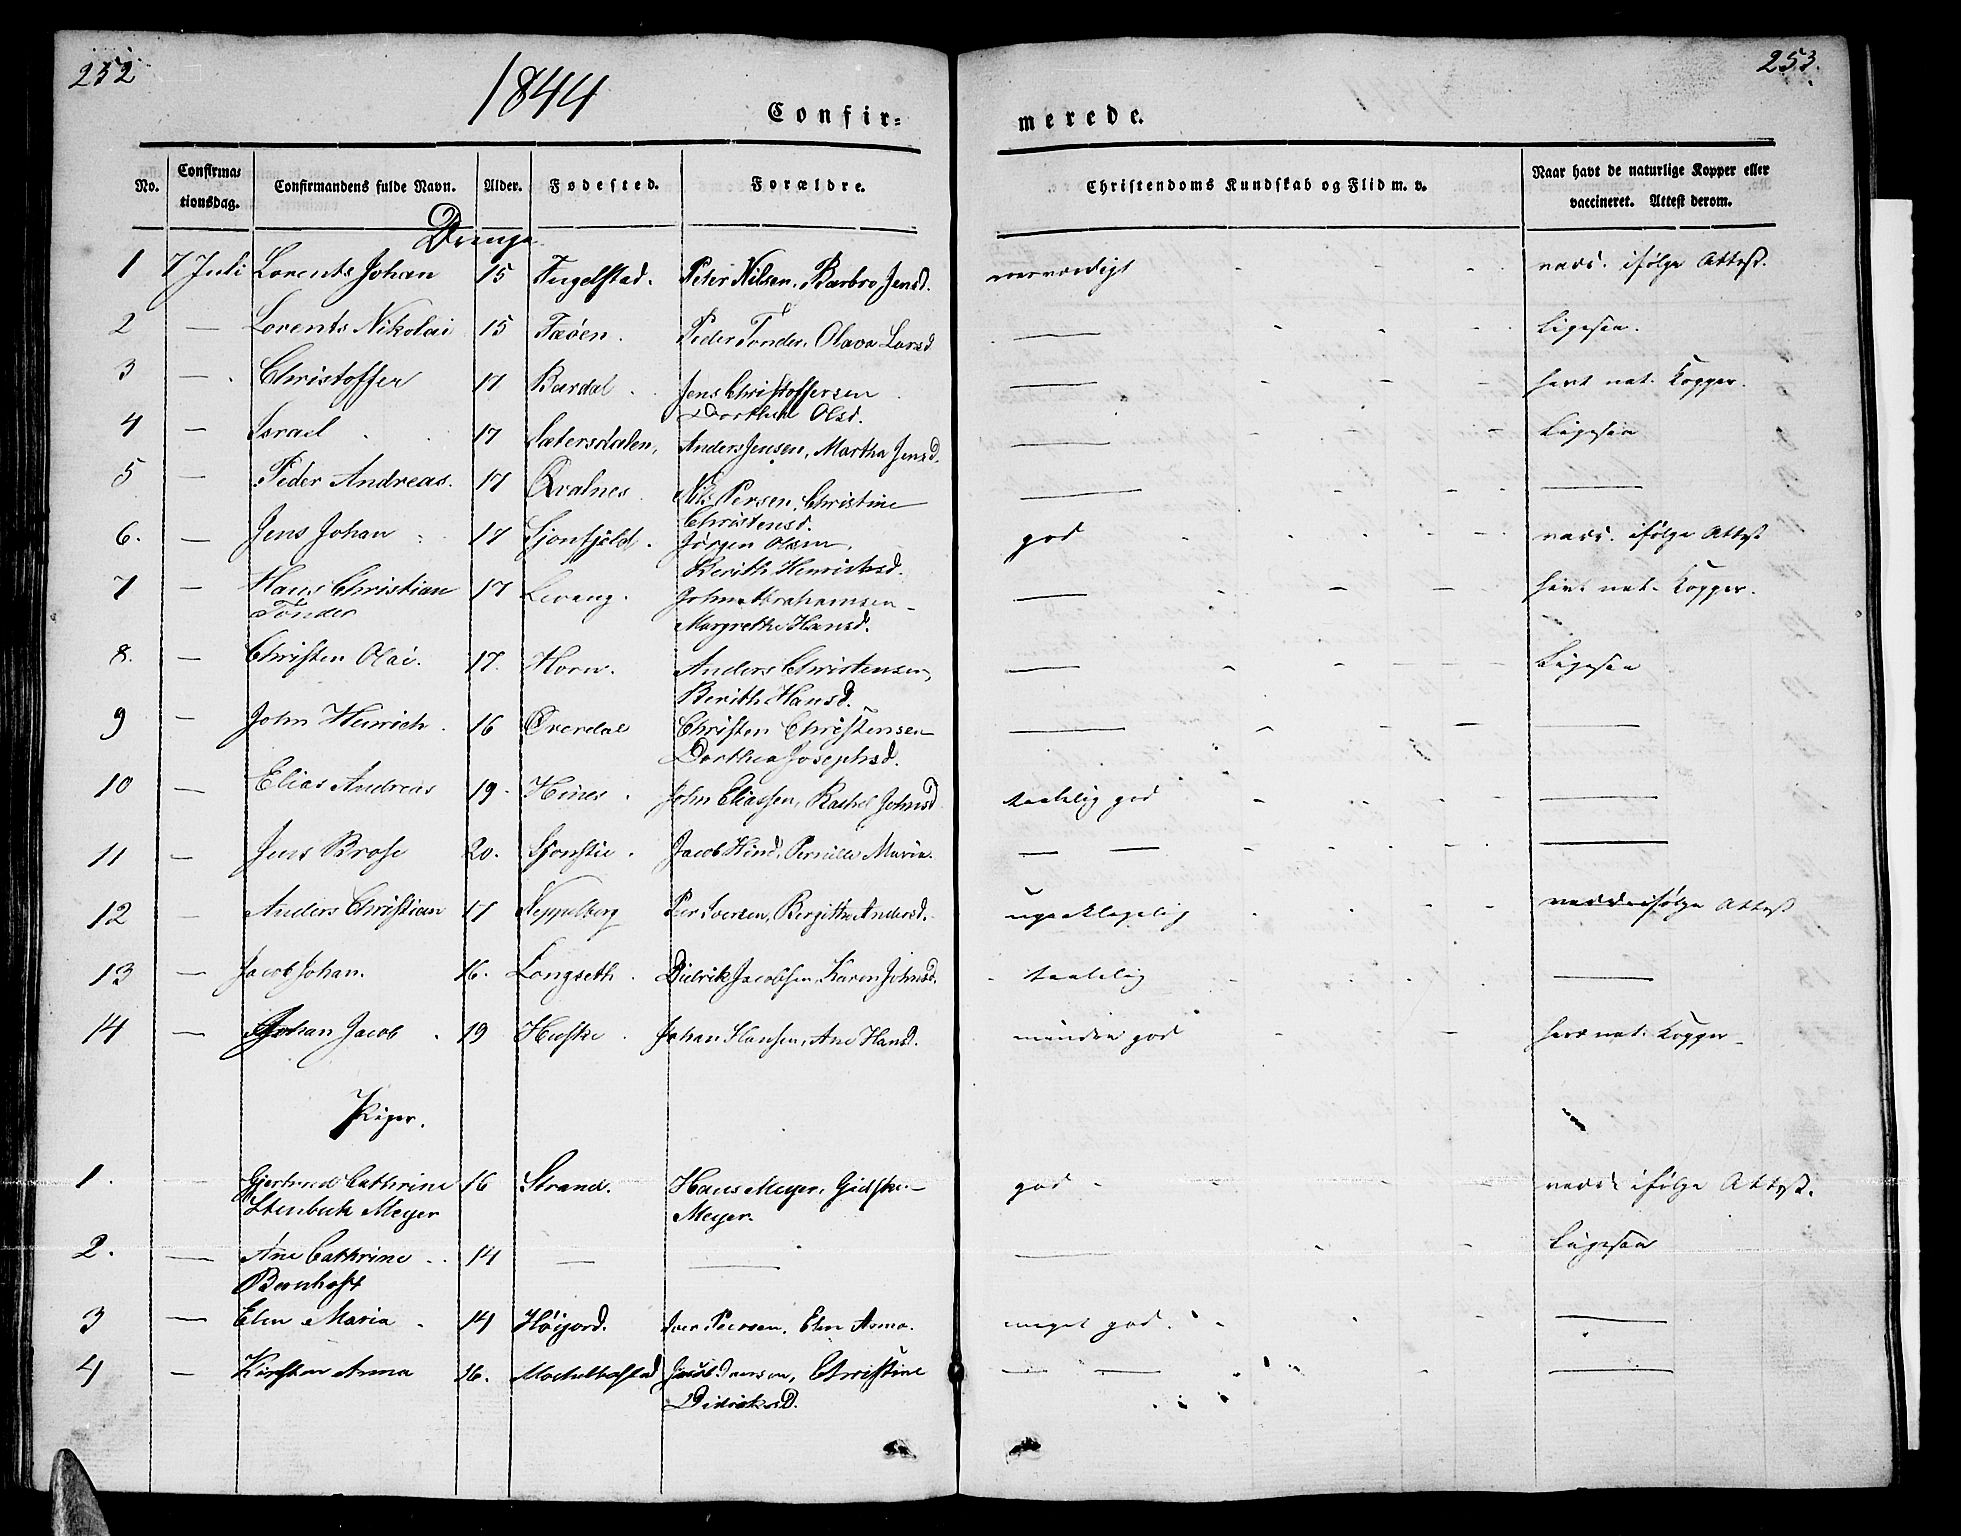 252
1844
Confir-
merede.
253.
No.
Confirma-
tionsdag.
Confirmandens fulde Navn.
Alder.
Fødested.
Forældre.
Christendoms Kundskab og Flid m. v.
Naar havt de naturlige Kopper eller
vaccineret. Attest derom.
Drenge
1 7 Juli Lorents Johan 15 Fugelstad. Peter Nilsen, Barbro Jensd. vacc. ifølge Attest.
2 — Lorents Nikolai 15 Fæøen. Peder Tønder, Olava Larsd — Ligesaa.
3 — Christoffer 17 Bardal Jens Christoffersen — havt nat. Kopper.
Dorthea Olsd.
4 — Israel 17 Sætersdalen, Anders Jensen, Martha Jensd. — Ligesaa
5 — Peder Andreas. 17 Qvalnes Nils Persen, Christine — —
Christensd.
6. — Jens Johan 17 Sjonfjeld. Jørgen Olsen, god vacc. ifølge Attest
Berith Henriksd.
7 — Hans Christian 17 Levang. John Abrahamsen — havt nat. Kopper.
Tønder
Margrethe Hansd.
8. — Christen Olai. 17. Horn. Anders Christensen, — Ligesaa
Berith Hansd.
9 — John Heinrich. 16 Øverdal Christen Christensen — —
Dorthea Josephsd.
10 — Elias Andreas 19. Hines John Eliassen, Rachel Johnsd taalelig god —
11 — Jens Brose 20. Sjonstie. Jacob Hind, Pernille Maria. — — —
12 — Anders Christian 17 Neppelberg Per Iversen, Birgitte Andersd. upaaklagelig vacc. ifølge Attest
13 — Jacob Johan. 16. Langseth. Didrik Jacobsen, Karen Johnsd. taalelig —
14 — Johan Jacob 19 Huske Johan Hansen, Ane Hansd. mindre god havt nat. Kopper
Piger.
1. — Gjertrud Cathrine 16 Strand. Hans Meyer, Gidske god vacc. ifølge Attest.
Stenbuch Meyer
Meyer.
2. — Ane Cathrine 14 — — — Ligesaa
Bernhoft
3 — Elen Maria 14 Høigord. Iver Persen, Elen Anna. meget god. —
4 — Kirsten Anna 16. Jacob Iversen, Christine — — —
Didriksd.